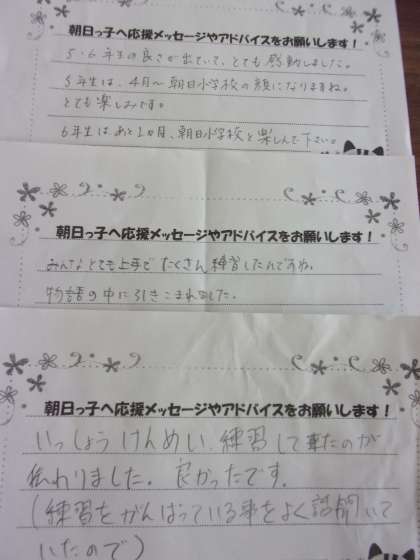 朝日っ子へ応援メッセージやアドバイスをお願いします！
5・6年生の良さが出ていて、とても感動しました。
5年生は、4月〜朝日小学校の顔になりますね。
とても楽しみです。
6年生はあと1カ月、朝日小学校を楽しんで下さい。
朝日っ子へ応援メッセージやアドバイスをお願いします！
みんなとても上手でたくさん練習したんですね。
物語の中に引きこまれました。
朝日っ子へ応援メッセージやアドバイスをお願いします！
いっしょうけんめい、練習して来たのが
伝わりました。良かったです。
(練習をがんばっている事をよく話聞いて
いたので)